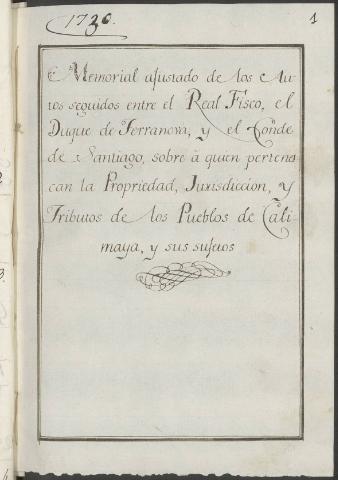 1730.
1
Memorial ajustado de los Au-
tos seguidos entre el Real Fisco, el
Duque de Terranova, y el Conde
de Santiago, sobre à quien pertenes
can la Propriedad, Jurisdiccion, y
Tributos de los Pueblos de Cali-
maya, y sus sujetos